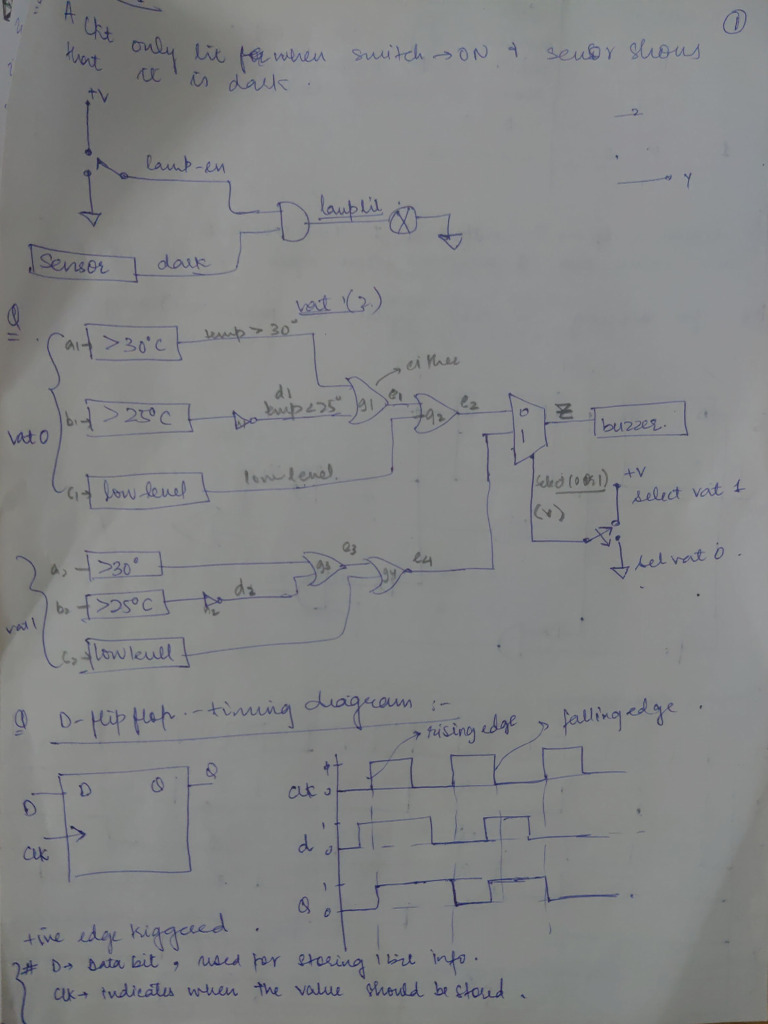 1
A ckt only lit for when switch → ON & sensor shows
that it is dark.
+V
lamp-en
lamp lit
sensor
dark
2
Y
Q
vat '(z)
vat 0
a1
>30°C
temp > 30°
either
b1
>25°C
d1
temp < 25°
g1
e1
g2
e2
0
1
Z
buzzer.
c1
low-level
low level.
select (0 or 1)
(V)
+V
select vat 1
sel vat 0.
vat 1
a2
>30°
g3
e3
g4
e4
b2
>25°C
d2
c2
Q D-flip flop - timing diagram :-
rising edge
falling edge.
D
D
Q
Q
Clk
Clk
1
0
d
1
0
Q
1
0
+ive edge triggered.
# D → Data bit, used for storing 1 bit info.
Clk → indicates when the value should be stored.